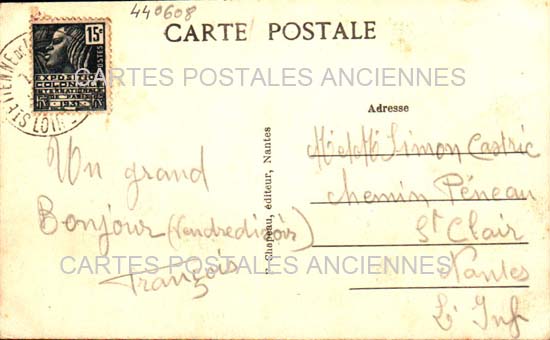 440608
CARTE POSTALE
15c
POSTES
EXPOSITION
COLONIALE
INTERNATIONALE
PARIS
1931
CARTES POSTALES ANCIENNES
Adresse
Un grand
Bonjour (Vendredi soir)
François
Chapeau, éditeur, Nantes
M et Mme Simon Castric
chemin Péneau
St Clair
Nantes
L. Inf
CARTES POSTALES ANCIENNES